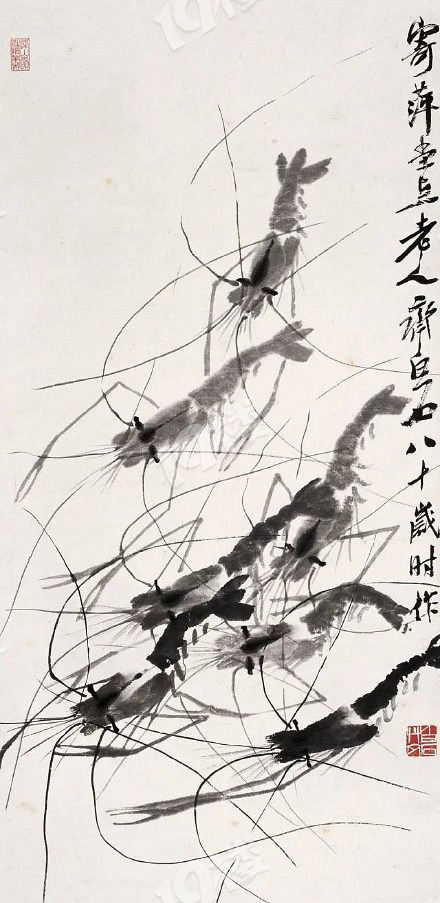 寄萍堂上老人齊白石八十歲时作
19楼